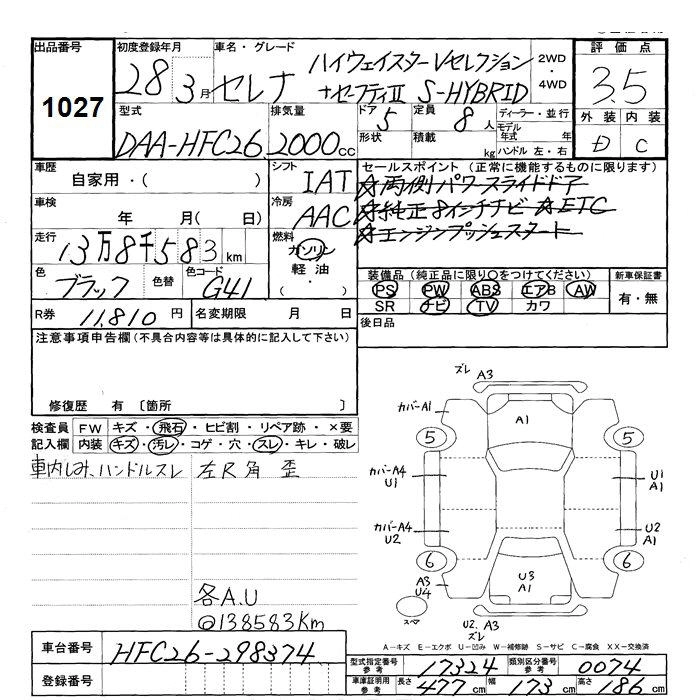 出品番号
1027
初度登録年月
28年3月
車名・グレード
セレナ
ハイウェイスターVセレクション
+セーフティII S-HYBRID
2WD・4WD
評価点
3.5
型式
DAA-HFC26
排気量
2000cc
ドア
5
形状
定員
8人
積載
kg
ディーラー・並行
モデル年式 年
ハンドル 左・右
外装 内装
D C
車歴
自家用・( )
車検
年 月( 日)
走行
13万8千583km
色
ブラック
色替
色コード
G41
シフト
IAT
冷房
AAC
燃料
ガソリン
軽油
( ・ )
セールスポイント(正常に機能するものに限ります)
☆両側パワースライドドア
☆純正8インチナビ☆ETC
☆エンジンプッシュスタート
装備品(純正品に限り○をつけてください)
PS PW ABS エアB AW
SR ナビ TV カワ
新車保証書
有・無
後日品
R券
11,810円
名変期限 月 日
注意事項申告欄(不具合内容等は具体的に記入して下さい)
修復歴 有〔箇所 〕
検査員記入欄
FW キズ・飛石・ヒビ割・リペア跡・×要
内装 キズ・汚レ・コゲ・穴・スレ・キレ・破レ
車内しみ、ハンドルスレ
左R角歪
各A.U
◎138583Km
ズレ A3
カバーA1
A1
5
5
カバーA4
U1
U1
A1
カバーA4
U2
U2
A1
6
6
A3
U4
U3
A1
スペア
U2、A3
ズレ
A-キズ E-エクボ U-凹み W-補修跡 S-サビ C-腐食 XX-交換済
車台番号
HFC26-298374
登録番号
型式指定番号 参考
17324
類別区分番号 参考
0074
車庫証明用 参考
長さ 477cm
幅 173cm
高さ 186cm